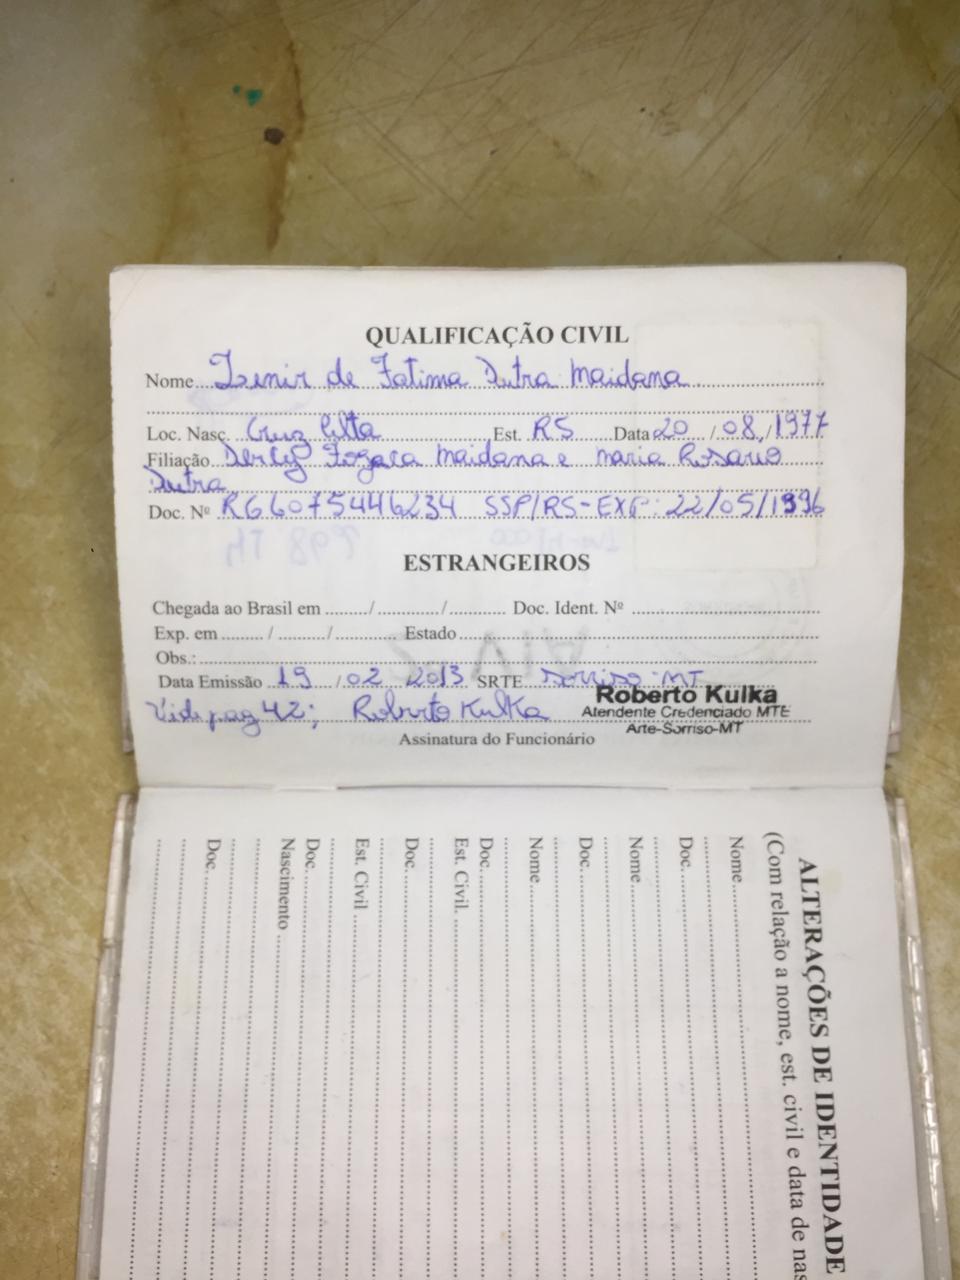 QUALIFICAÇÃO CIVIL
Nome Zenir de Fatima Dutra Maidana
Loc. Nasc. Cruz Alta Est. RS Data 20 / 08 / 1977
Filiação Dercy Fogaca Maidana e Maria Rosario
Dutra
Doc. Nº RG6075446234 SSP/RS-EXP: 22/05/1996
ESTRANGEIROS
Chegada ao Brasil em ......../............/........... Doc. Ident. Nº
Exp. em ........ / ........./............ Estado
Obs.:
Data Emissão 19 / 02 / 2013 SRTE Sorriso-MT
Roberto Kulka
Atendente Credenciado MTE
Arte-Sorriso-MT
Vide pag 42; Roberto Kulka
Assinatura do Funcionário
ALTERAÇÕES DE IDENTIDADE
(Com relação a nome, est. civil e data de nas
Nome
Doc.
Nome
Doc.
Nome
Doc.
Est. Civil.
Doc.
Est. Civil
Doc.
Nascimento
Doc.